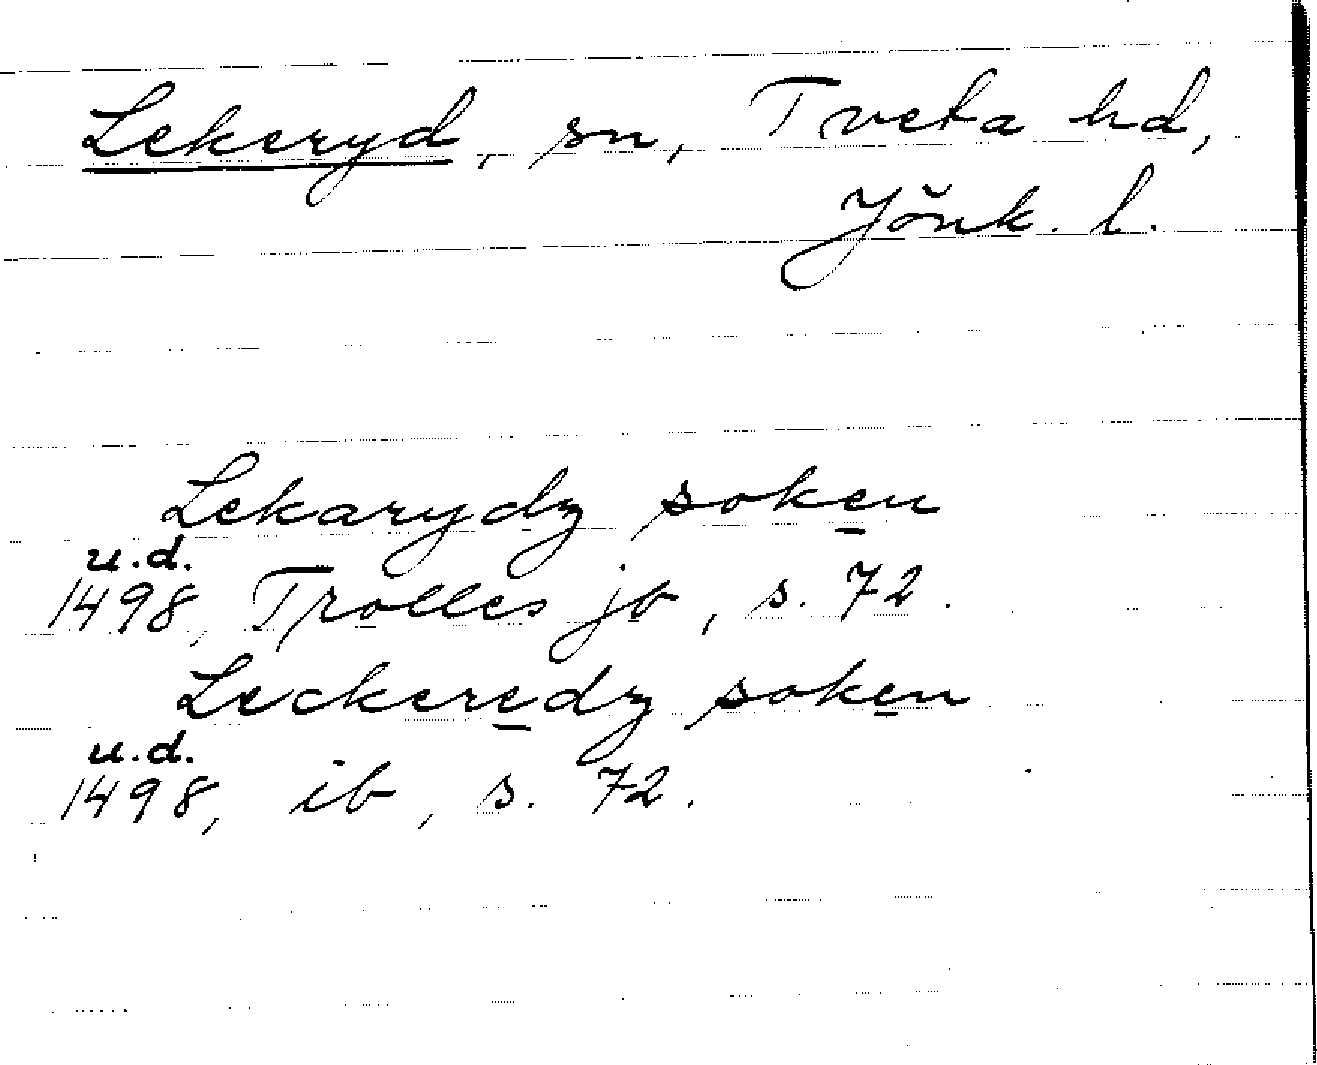 Lekeryd, sn, Tveta hd,
Jönk. l.
Lekarydz soken
u.d.
1498, Trolles jb, s. 72.
Leckeredz soken
u.d.
1498, ib, s. 72.